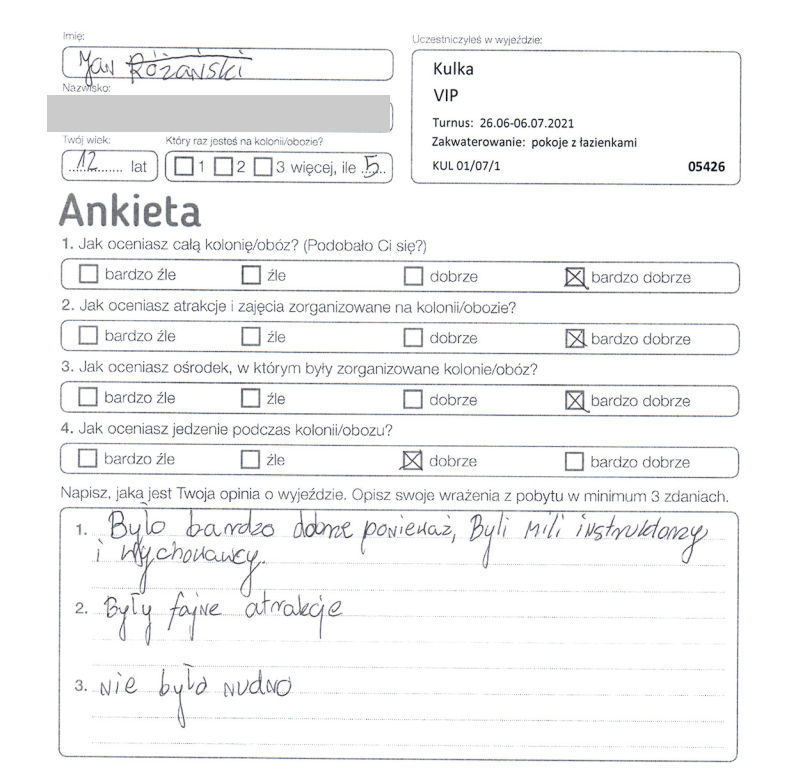 Imię:
Jan Różański
Nazwisko:
Twój wiek:
12 lat
Który raz jesteś na kolonii/obozie?
1 2 3 więcej, ile 5
Uczestniczyłeś w wyjeździe:
Kulka
VIP
Turnus: 26.06-06.07.2021
Zakwaterowanie: pokoje z łazienkami
KUL 01/07/1 05426
Ankieta
1. Jak oceniasz całą kolonię/obóz? (Podobało Ci się?)
bardzo źle źle dobrze bardzo dobrze
2. Jak oceniasz atrakcje i zajęcia zorganizowane na kolonii/obozie?
bardzo źle źle dobrze bardzo dobrze
3. Jak oceniasz ośrodek, w którym były zorganizowane kolonie/obóz?
bardzo źle źle dobrze bardzo dobrze
4. Jak oceniasz jedzenie podczas kolonii/obozu?
bardzo źle źle dobrze bardzo dobrze
Napisz, jaka jest Twoja opinia o wyjeździe. Opisz swoje wrażenia z pobytu w minimum 3 zdaniach.
1. Było bardzo dobrze ponieważ, Byli mili instruktorzy
i wychowawcy.
2. Były fajne atrakcje
3. nie było nudno